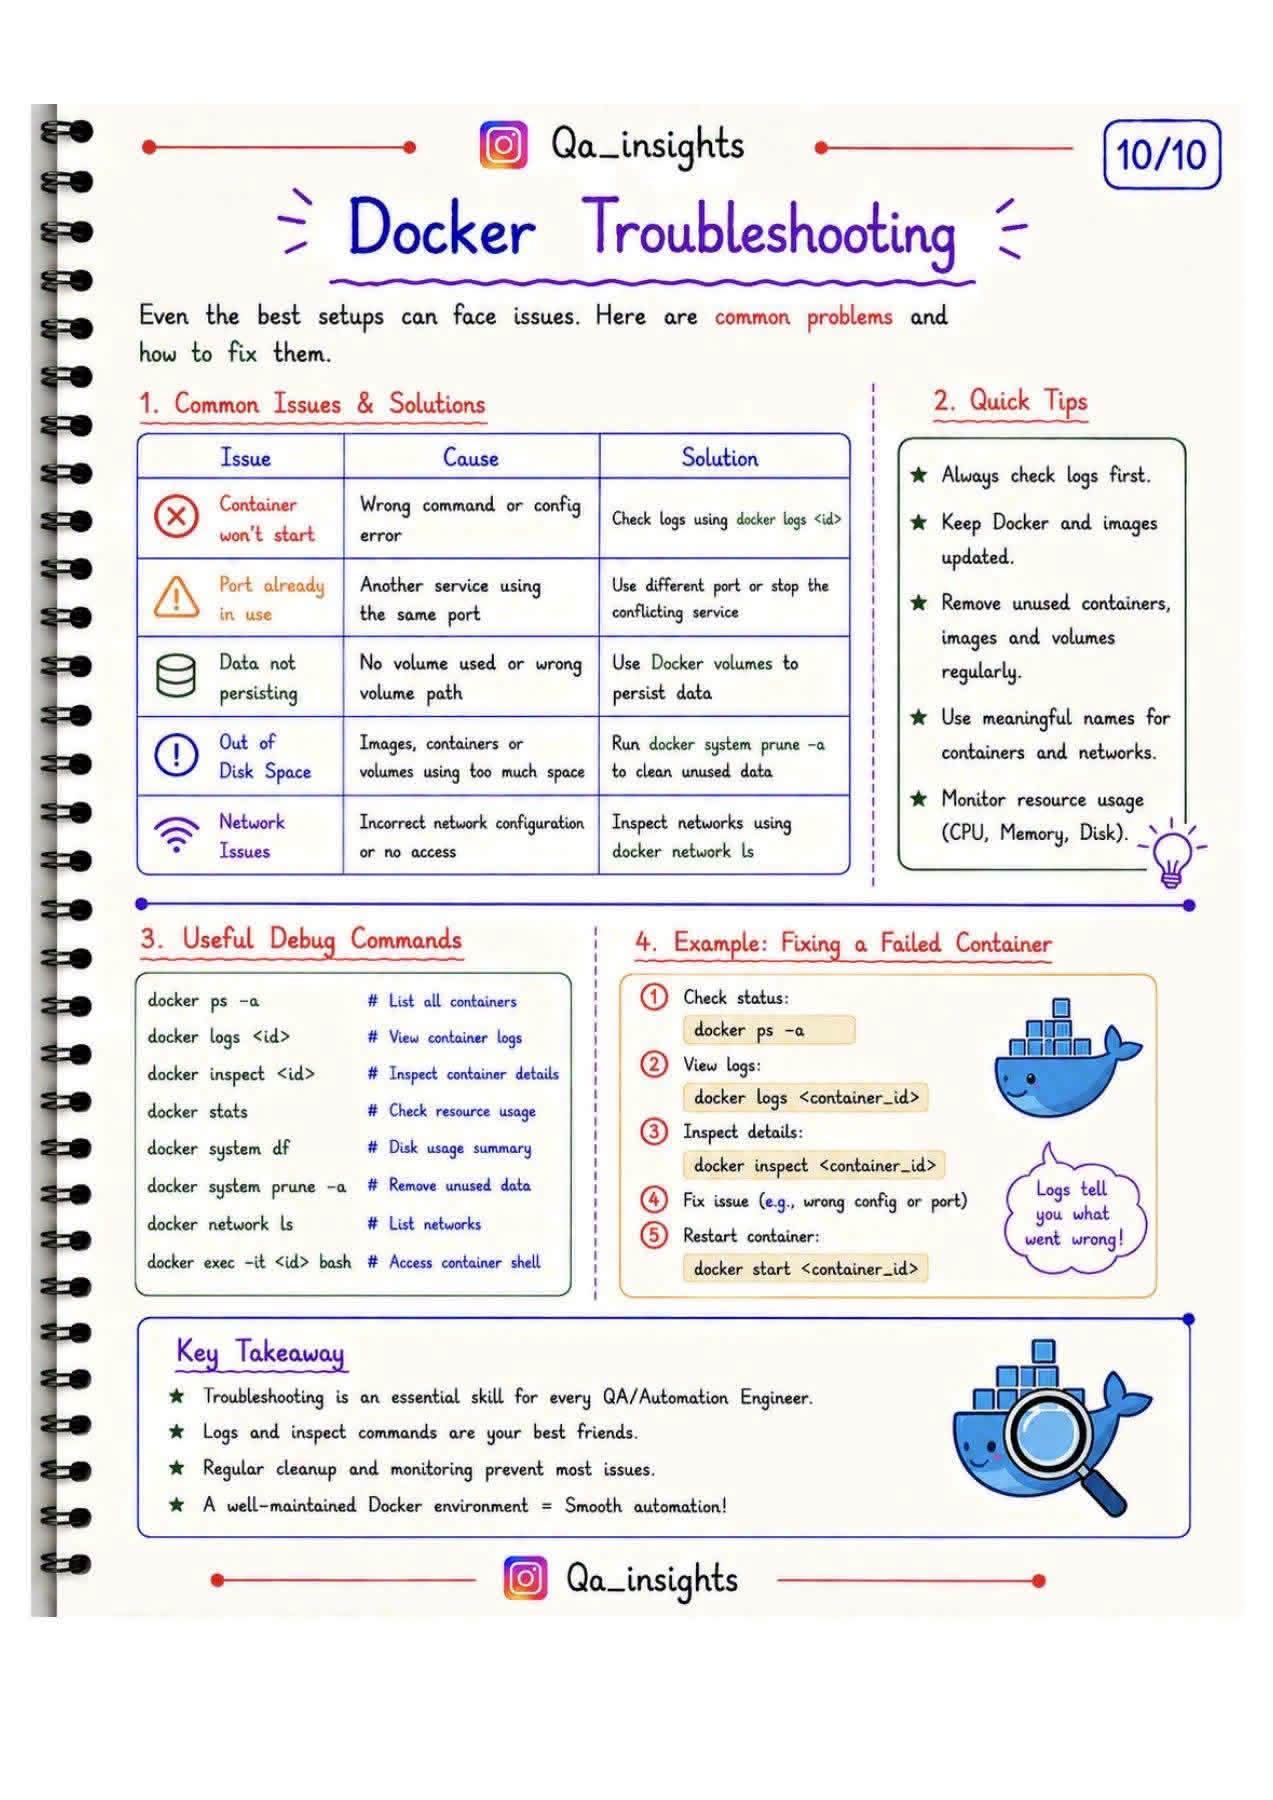 Qa_insights
10/10
Docker Troubleshooting
Even the best setups can face issues. Here are common problems and
how to fix them.
1. Common Issues & Solutions
Issue Cause Solution
Container
won't start
Wrong command or config
error
Check logs using docker logs <id>
Port already
in use
Another service using
the same port
Use different port or stop the
conflicting service
Data not
persisting
No volume used or wrong
volume path
Use Docker volumes to
persist data
Out of
Disk Space
Images, containers or
volumes using too much space
Run docker system prune -a
to clean unused data
Network
Issues
Incorrect network configuration
or no access
Inspect networks using
docker network ls
2. Quick Tips
★ Always check logs first.
★ Keep Docker and images
updated.
★ Remove unused containers,
images and volumes
regularly.
★ Use meaningful names for
containers and networks.
★ Monitor resource usage
(CPU, Memory, Disk).
3. Useful Debug Commands
docker ps -a # List all containers
docker logs <id> # View container logs
docker inspect <id> # Inspect container details
docker stats # Check resource usage
docker system df # Disk usage summary
docker system prune -a # Remove unused data
docker network ls # List networks
docker exec -it <id> bash # Access container shell
4. Example: Fixing a Failed Container
1 Check status:
docker ps -a
2 View logs:
docker logs <container_id>
3 Inspect details:
docker inspect <container_id>
4 Fix issue (e.g., wrong config or port)
5 Restart container:
docker start <container_id>
Logs tell
you what
went wrong!
Key Takeaway
★ Troubleshooting is an essential skill for every QA/Automation Engineer.
★ Logs and inspect commands are your best friends.
★ Regular cleanup and monitoring prevent most issues.
★ A well-maintained Docker environment = Smooth automation!
Qa_insights